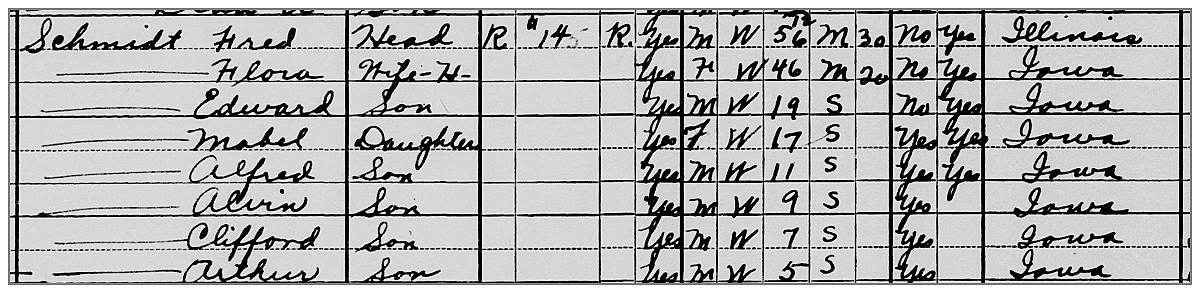 Schmidt Fred Head R $14 R. Yes M W 56 M 30 No Yes Illinois
Flora Wife-H- Yes F W 46 M 20 No Yes Iowa
Edward Son Yes M W 19 S No Yes Iowa
Mabel Daughter Yes F W 17 S Yes Yes Iowa
Alfred Son Yes M W 11 S Yes Yes Iowa
Alvin Son Yes M W 9 S Yes Iowa
Clifford Son Yes M W 7 S Yes Iowa
Arthur Son Yes M W 5 S Yes Iowa